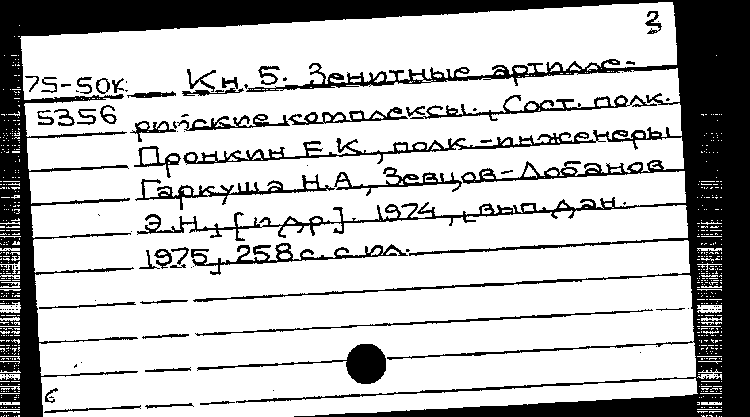 3
75-50к Кн. 5. Зенитные артилле-
5356 рийские комплексы. Сост. полк.
Пронкин Е.К., полк.-инженеры
Гаркуша Н.А., Зевцов-Лобанов
Э.Н., [и др.]. 1974, вып. дан.
1975, 258 с. с ил.
6